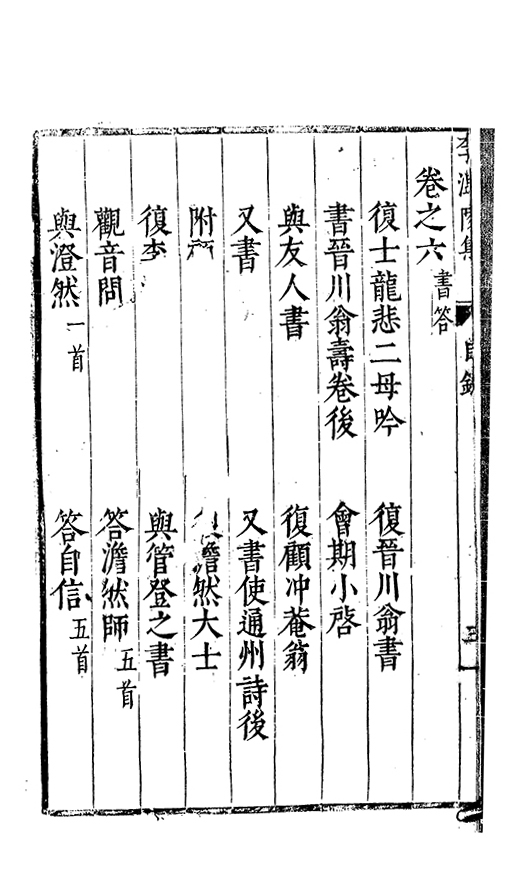 李溫陵集
目錄
卷之六 書答
復士龍悲二母吟 復晉川翁書
書晉川翁壽卷後 會期小啓
與友人書 復顧冲菴翁
又書 又書使通州詩後
附 澹然大士
復李 與管登之書
觀音問 答澹然師 五首
與澄然 一首 答自信 五首